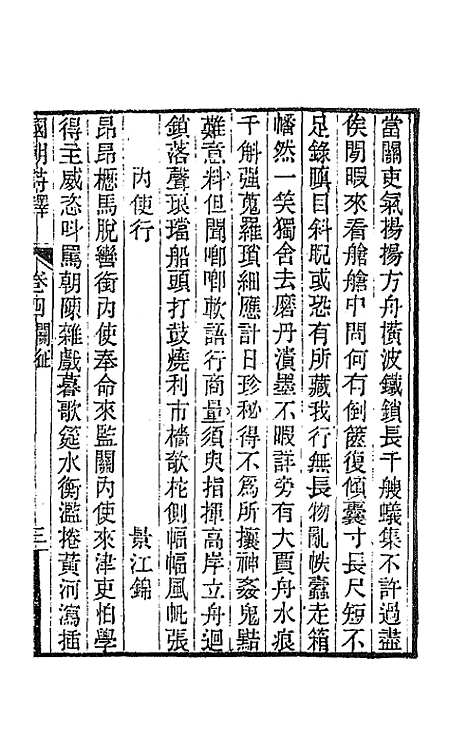 當關吏氣揚揚方舟橫波鐵鎖長千艘蟻集不許過盡
俟閒暇來看艙艙中問何有倒篋復傾囊寸長尺短不
足錄瞋目斜睨或恐有所藏我行無長物亂帙蠹走箱
幡然一笑獨舍去磨丹漬墨不暇詳旁有大賈舟水痕
千斛强蒐羅瑣細應計日珍秘得不爲所攘神姦鬼黠
難意料但聞啣啣軟語行商量須臾指揮高岸立舟迴
鎖落聲琅璫船頭打鼓燒利市檣欹柁側幅幅風帆張
內使行　景江錦
昂昂櫪馬脫轡銜內使奉命來監關內使來津吏怕學
得主威恣呌罵朝陳雜戲暮歌筵水衡濫捲黃河瀉插
國朝詩鐸　卷四關征　三